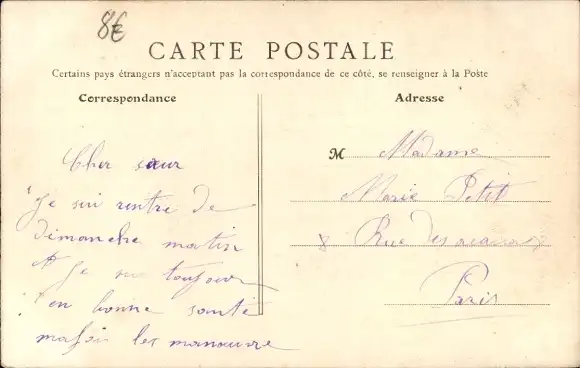 8€
CARTE POSTALE
Certains pays étrangers n'acceptant pas la correspondance de ce côté, se renseigner à la Poste
Correspondance
Cher sœur
Je sui rentre de
dimanche matin
Je sui toujour
en bonne santé
mafoi les manœuvre
Adresse
M Madame
Marie Petit
8 Rue des
Paris